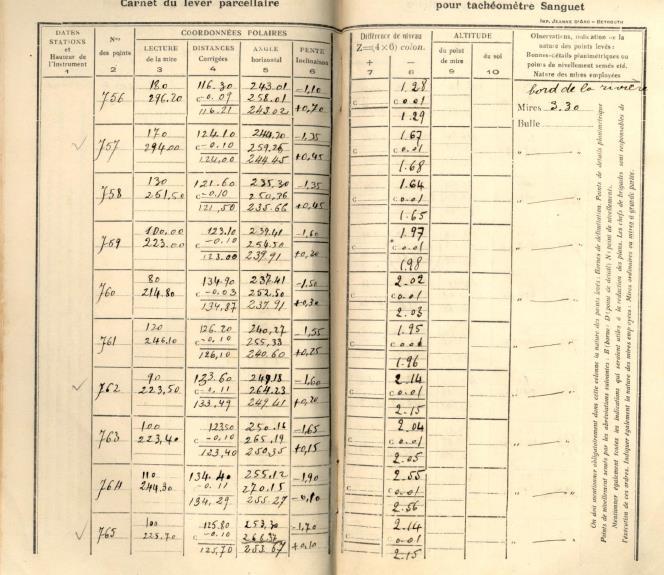 Carnet du lever parcellaire pour tachéomètre Sanguet
IMP. JEANNE D'ARC - BEYROUTH
DATES STATIONS et Hauteur de l'Instrument
Nos des points
COORDONNÉES POLAIRES
LECTURE de la mire
DISTANCES Corrigées
ANGLE horizontal
PENTE Inclinaison
Différence de niveau
Z=(4×6) colon.
+ −
ALTITUDE
du point de mire
du sol
Observations, indication de la nature des points levés:
Bornes-détails planimétriques ou points du nivellement semés etc.
Nature des mires employées
1 2 3 4 5 6 7 8 9 10
180 116.30 243.01 -1,10 1.28 bord de la rivière
756 296.20 c-0.09 258.01 c c0.01 Mires 3.30
116.21 243.02 +0,70 1.29 Bulle
170 124.10 244.20 -1,35 1.67
757 294.00 c-0.10 259.26 c c0.01
124,00 244.45 +0,45 1.68
130 121.60 235.30 -1,35 1.64
758 261,50 c-0.10 250.76 c c0.01
121,50 235.66 +0,45 1.65
100.00 123.10 239.41 -1,60 1.97
759 223.00 c-0.10 254.50 c c0.01
123.00 239.91 +0,20 1.98
80 134.90 237.41 -1,50 2.02
760 214.80 c-0.03 252.50 c c0.01
134,87 237.91 +0,30 2.03
120 126.20 240,27 -1,55 1.95
761 246.10 c-0.10 255,33 c c0.01
126,10 240.60 +0,25 1.96
90 133.60 249.18 -1,60 2.14
762 223,50 c-0.11 264.23 c c0.01
133,49 249.41 +0,20 2.15
100 12350 250.16 -1,65 2.04
763 223,40 c-0.10 265.19 c c0.01
123,40 250.35 +0,15 2.05
110 134.40 255.12 -1,90 2.55
764 244.30 c-0.11 270.15 c c0.01
134,29 255.27 -0,10 2.56
100 125.80 253,30 -1,70 2.14
765 225.70 c-0.10 c c0.01
125,70 253.67 +0,10 2.15
On doit mentionner obligatoirement dans cette colonne la nature des points levés: Bornes de délimitation. Points de détails planimétrique
Points de nivellement semés par les abréviations suivantes: B (borne) D (point de détail) N (point de nivellement).
Mentionner également toutes les indications qui seraient utiles à la rédaction des plans. Les chefs de brigades sont responsables de
l'exécution de ces ordres. Indiquer également la nature des mires employées: Mires ordinaires ou mires à grande portée.